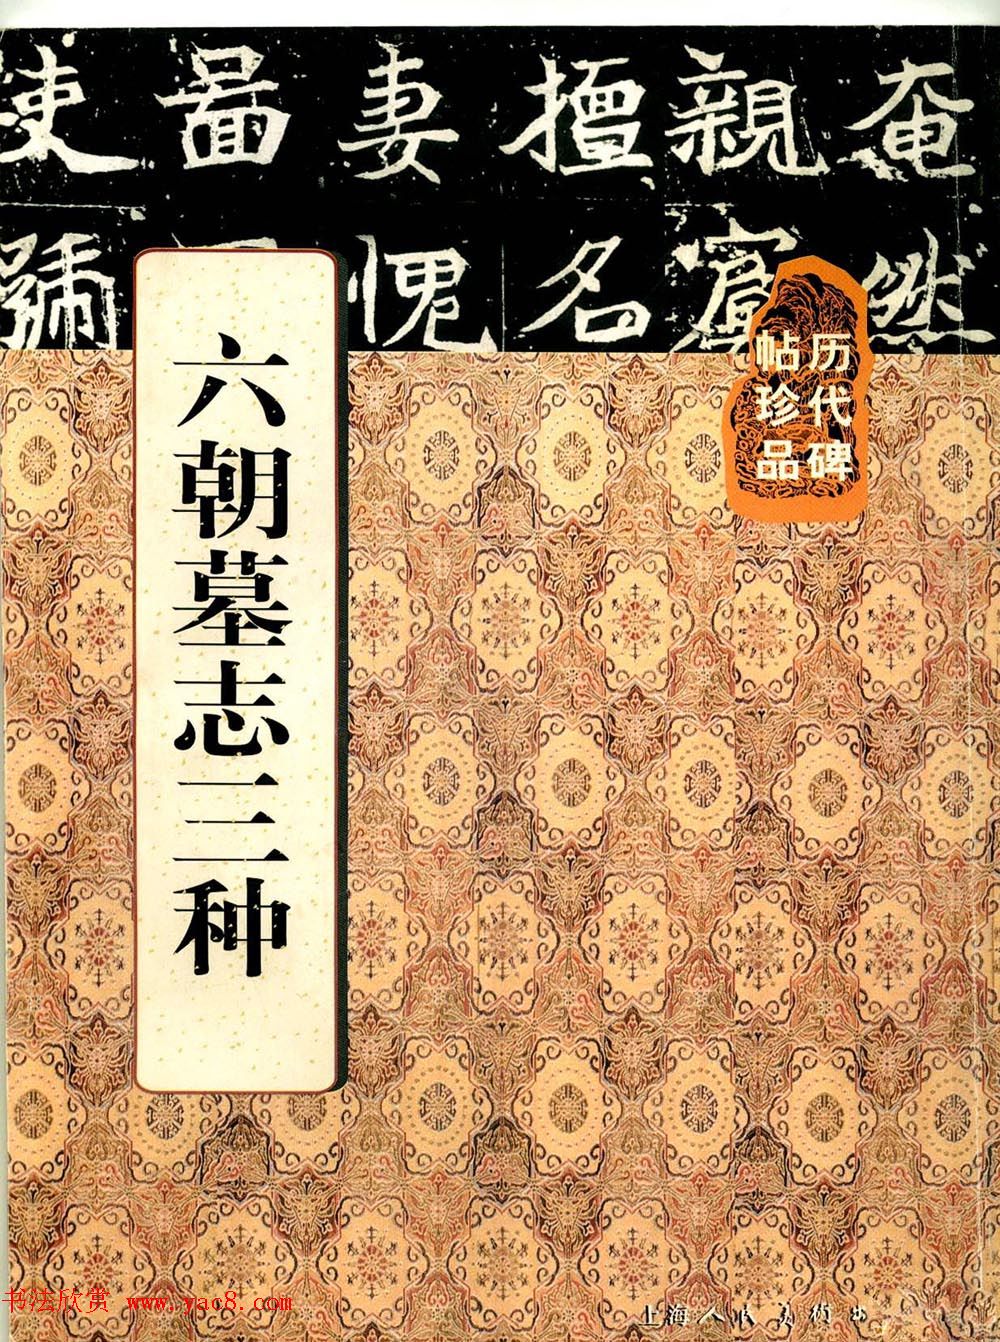 奄然
親賓
擅名
妻愧
啚
使號
历代碑
帖珍品
六朝墓志三种
上海人民美術出
书法欣赏 www.yac8.com